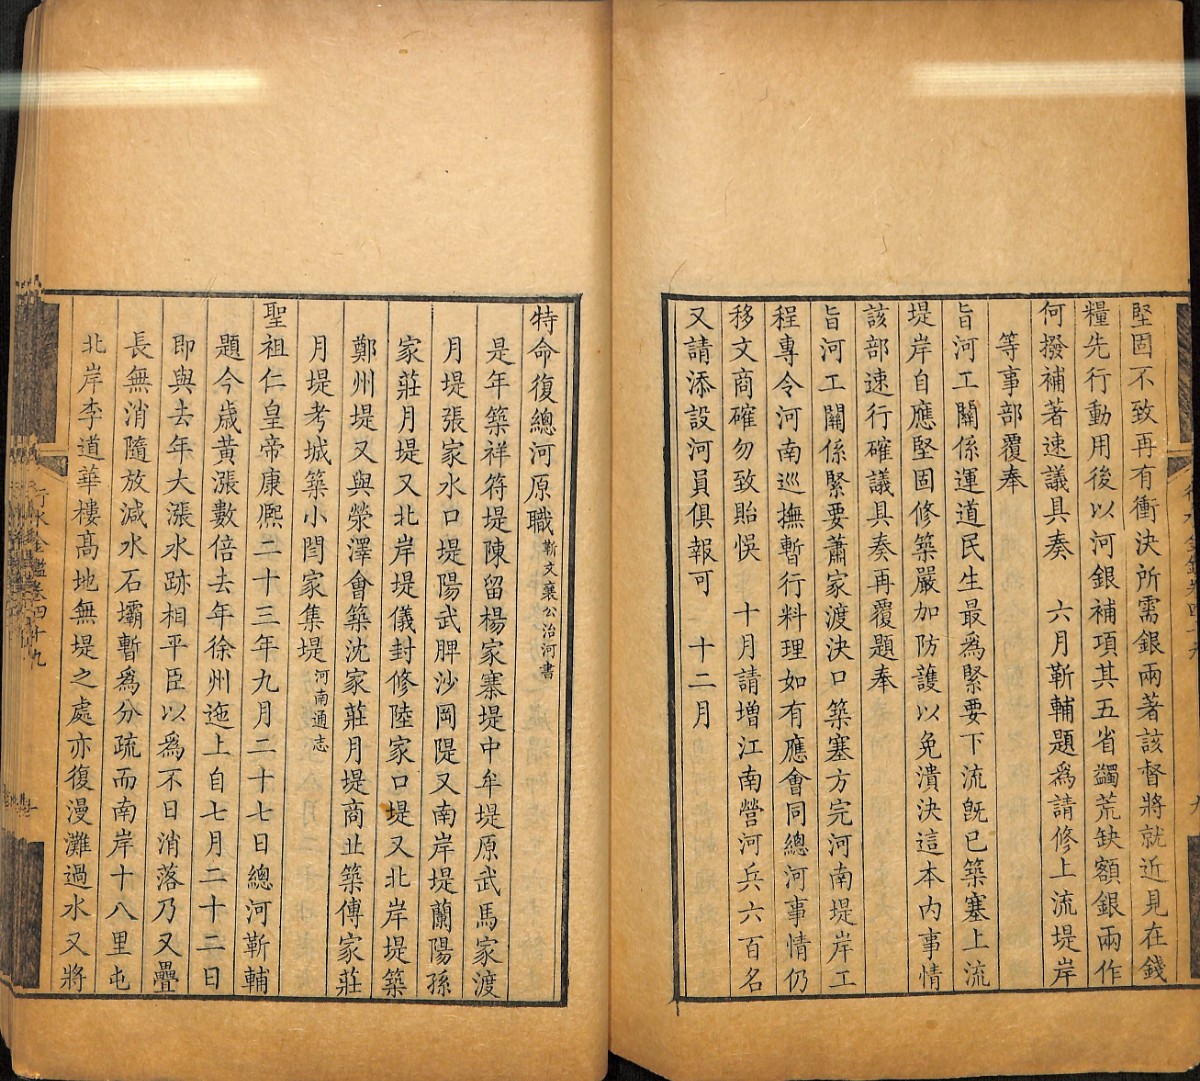 堅固不致再有衝決所需銀兩著該督將就近見在錢
糧先行動用後以河銀補項其五省蠲荒缺額銀兩作
何撥補著速議具奏　六月靳輔題爲請修上流堤岸
等事部覆奉
旨河工關係運道民生最爲緊要下流旣已築塞上流
堤岸自應堅固修築嚴加防護以免潰決這本內事情
該部速行確議具奏再覆題奉
旨河工關係緊要蕭家渡決口築塞方完河南堤岸工
程專令河南巡撫暫行料理如有應會同總河事情仍
移文商確勿致貽悞　十月請增江南營河兵六百名
又請添設河員俱報可　十二月
特命復總河原職靳文襄公治河書
是年築祥符堤陳留楊家寨堤中牟堤原武馬家渡
月堤張家水口堤陽武脾沙岡隄又南岸堤蘭陽孫
家莊月堤又北岸堤儀封修陸家口堤又北岸堤築
鄭州堤又與滎澤會築沈家莊月堤商丘築傅家莊
月堤考城築小閆家集堤河南通志
聖祖仁皇帝康熙二十三年九月二十七日總河靳輔
題今歲黃漲數倍去年徐州迤上自七月二十二日
即與去年大漲水跡相平臣以爲不日消落乃又疊
長無消隨放減水石壩暫爲分疏而南岸十八里屯
北岸李道華樓高地無堤之處亦復漫灘過水又將
行水金鑑卷四十九